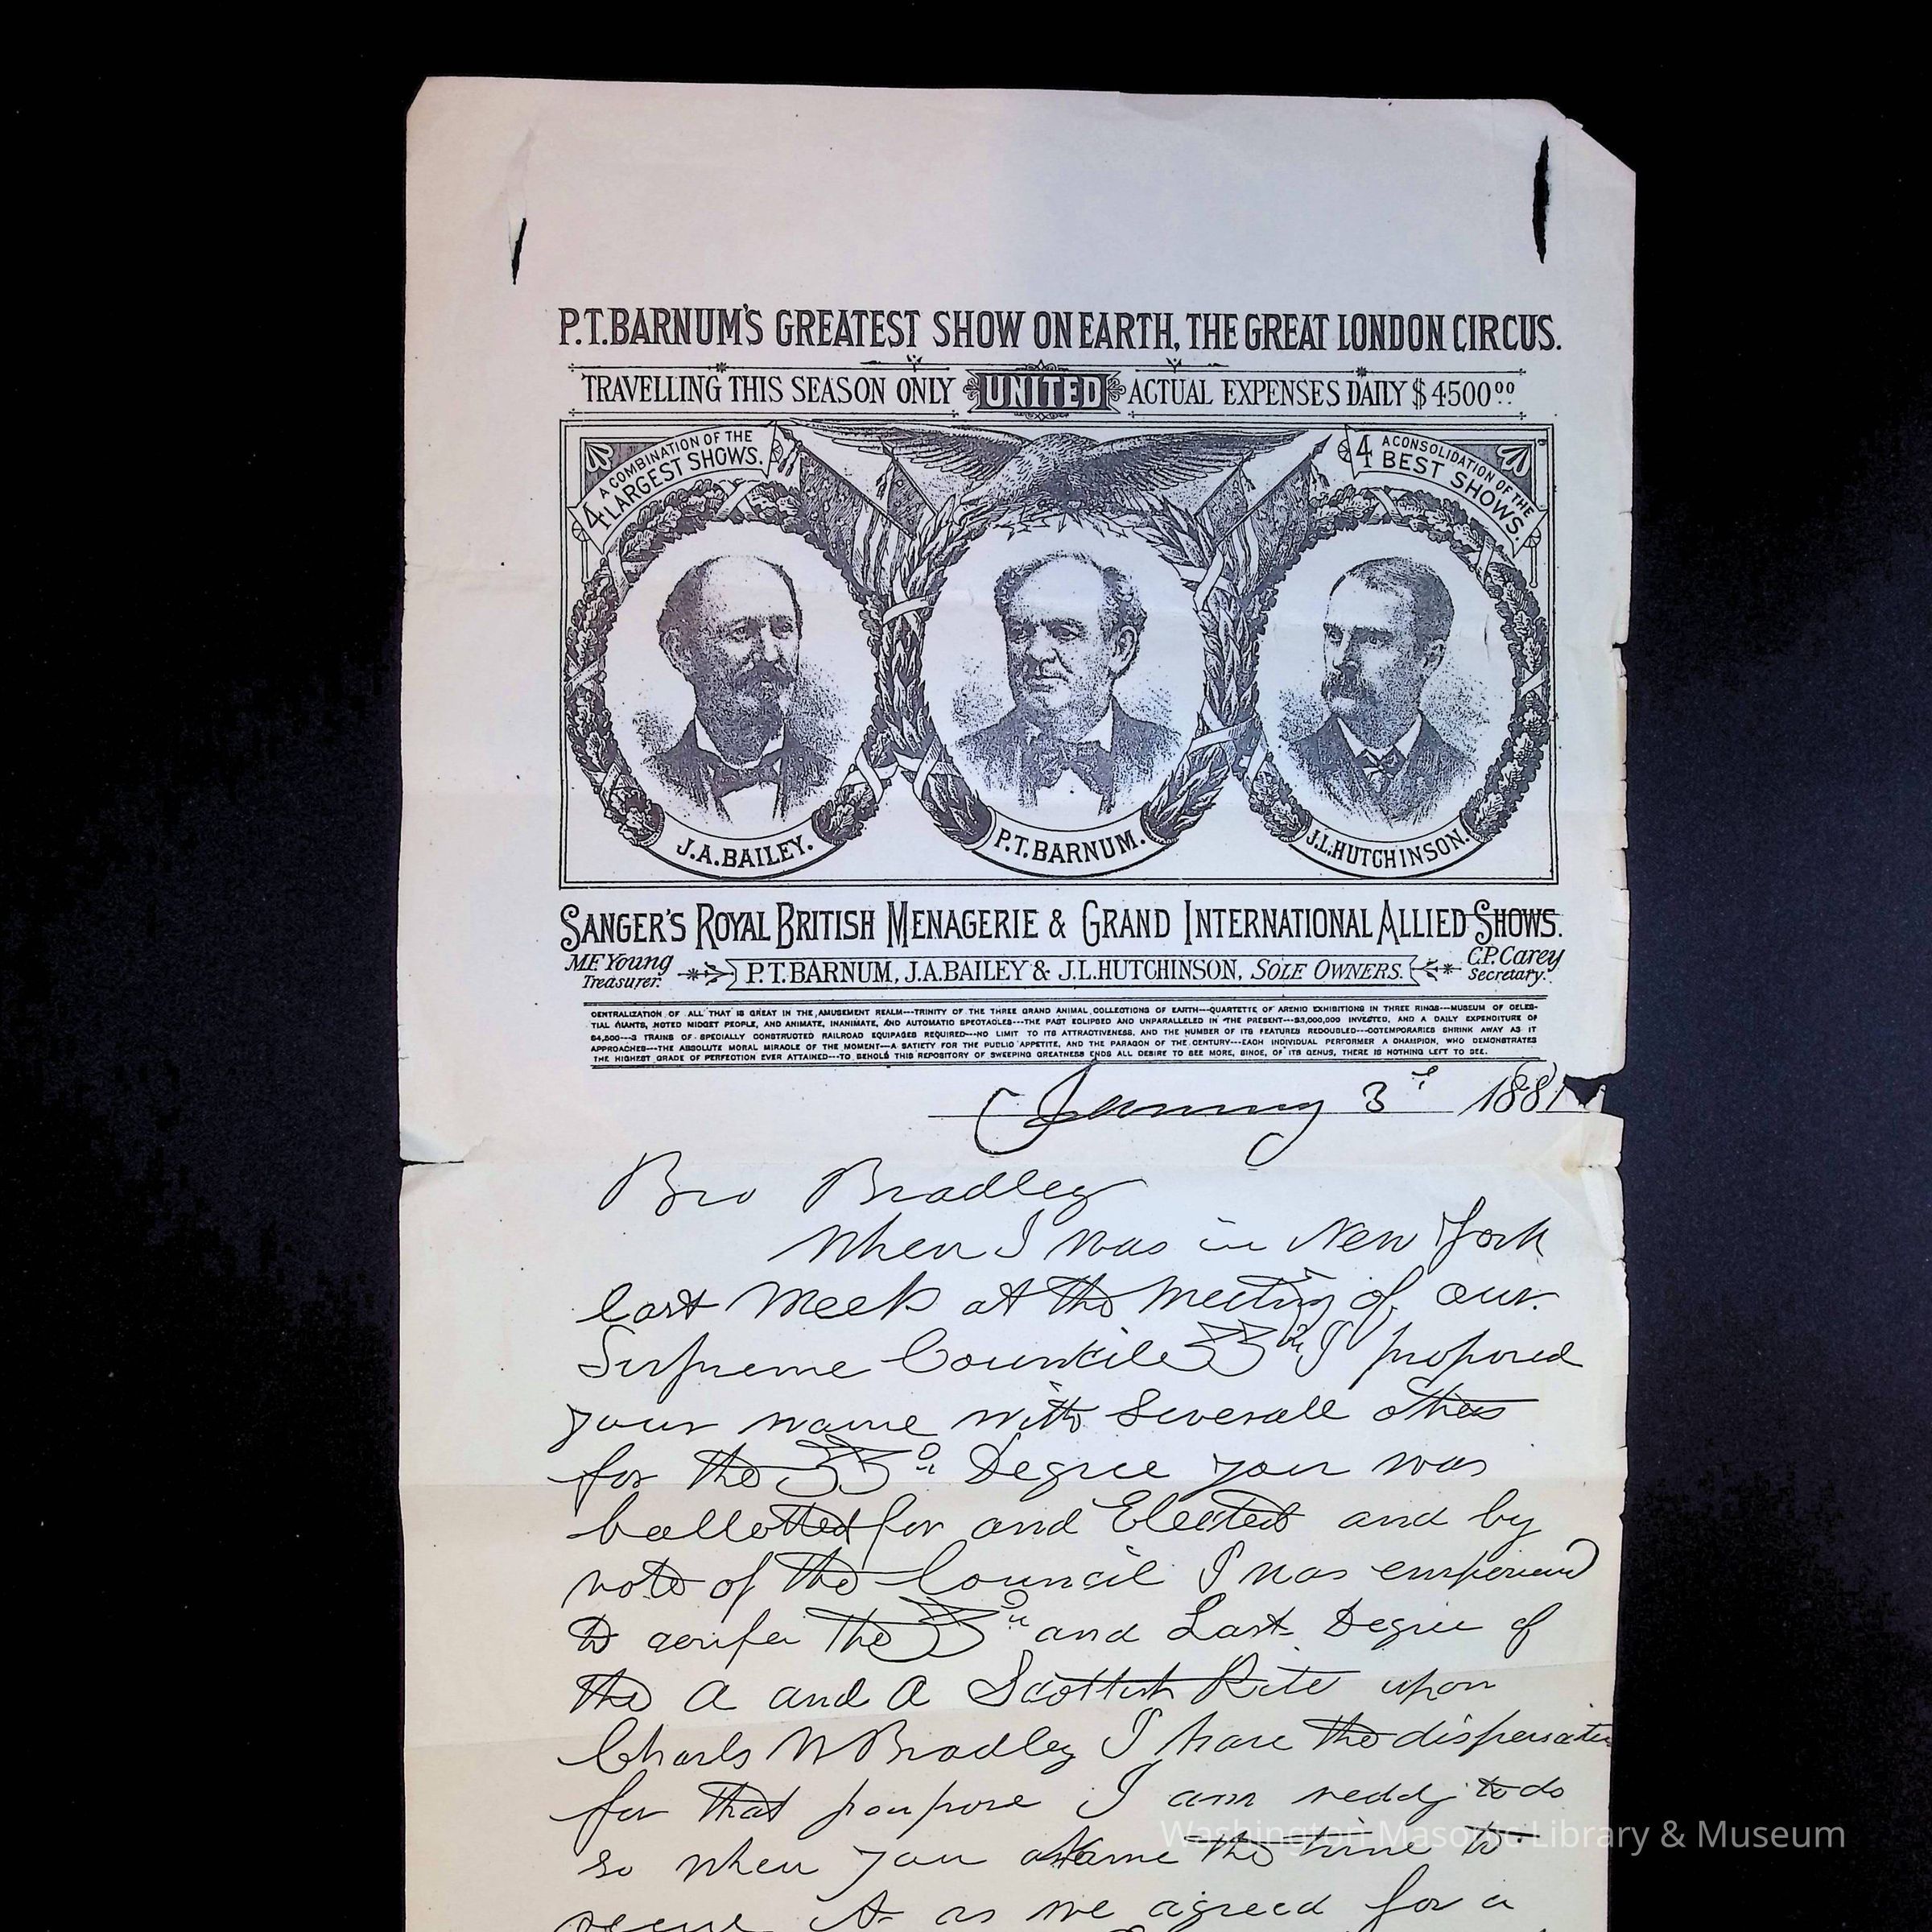 P.T.BARNUM'S GREATEST SHOW ON EARTH, THE GREAT LONDON CIRCUS.
TRAVELLING THIS SEASON ONLY UNITED ACTUAL EXPENSES DAILY $4500.00
A COMBINATION OF THE
4 LARGEST SHOWS.
A CONSOLIDATION OF THE
4 BEST SHOWS.
J.A.BAILEY.
P.T.BARNUM.
J.L.HUTCHINSON.
SANGER'S ROYAL BRITISH MENAGERIE & GRAND INTERNATIONAL ALLIED SHOWS.
M.F. Young
Treasurer.
P.T.BARNUM, J.A.BAILEY & J.L.HUTCHINSON, SOLE OWNERS.
C.P. Carey
Secretary.
CENTRALIZATION OF ALL THAT IS GREAT IN THE AMUSEMENT REALM---TRINITY OF THE THREE GRAND ANIMAL COLLECTIONS OF EARTH---QUARTETTE OF ARENIC EXHIBITIONS IN THREE RINGS---MUSEUM OF CELES-
TIAL GIANTS, NOTED MIDGET PEOPLE, AND ANIMATE, INANIMATE, AND AUTOMATIC SPECTACLES---THE PAST ECLIPSED AND UNPARALLELED IN THE PRESENT---$3,000,000 INVESTED, AND A DAILY EXPENDITURE OF
$4,500---3 TRAINS OF SPECIALLY CONSTRUCTED RAILROAD EQUIPAGES REQUIRED---NO LIMIT TO ITS ATTRACTIVENESS, AND THE NUMBER OF ITS FEATURES REDOUBLED---COTEMPORARIES SHRINK AWAY AS IT
APPROACHES---THE ABSOLUTE MORAL MIRACLE OF THE MOMENT---A SATIETY FOR THE PUBLIC APPETITE, AND THE PARAGON OF THE CENTURY---EACH INDIVIDUAL PERFORMER A CHAMPION, WHO DEMONSTRATES
THE HIGHEST GRADE OF PERFECTION EVER ATTAINED---TO BEHOLD THIS REPOSITORY OF SWEEPING GREATNESS ENDS ALL DESIRE TO SEE MORE, SINCE, OF ITS GENUS, THERE IS NOTHING LEFT TO SEE.
January 3 1881
Bro Bradley
When I was in New York
last Week at the Meeting of our
Supreme Councile 33 I proposed
your name with Severall others
for the 33 Degree you was
ballotted for and Elected and by
vote of the Council I was
to confer the 33 and Last Degree of
the A and A Scottish Rite upon
Charls W Bradley I have the
for that pourpose I am reddy to do
so when you Name the time to
it as we agreed for a
Washington Masonic Library & Museum